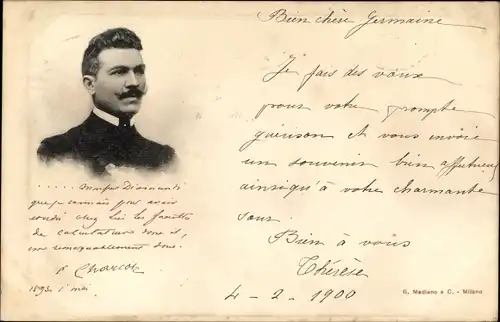 Bien chère Germaine
Je fais des vœux
pour votre prompte
guérison et vous envoie
un souvenir bien affectueux
ainsi qu'à votre charmante
sœur.
Bien à vous
Thérèse
4 - 2 - 1900
...... Monsieur Diamandi
que jamais pas avoir
chez lui les facultés
de calculateur dont il,
est remarquablement doué.
Charcot
1893. 1 mai
G. Mediano e C. - Milano